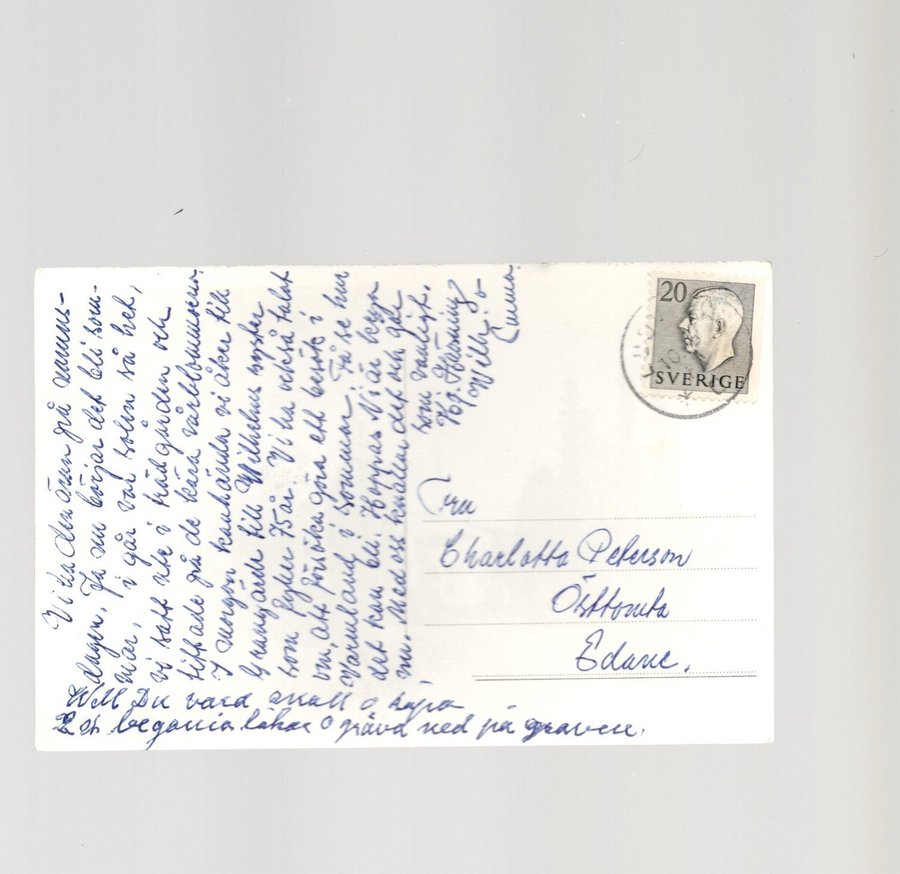 Vi ha den äran på namns-
dagen. Ja nu börjar det bli som-
mar, i går var solen så het,
vi satt ute i trädgården och
tittade på de kära vårblommorna.
I morgon kanhända vi åker till
Grangärde till Wilhelms syster
som fyller 75 år. Vi ha också talat
om att försöka göra ett besök i
Värmland i sommar. Få se hur
det kan bli. Hoppas Ni är krya
nu. Med oss knallar det och går
som vanligt.
Hj Hälsning
Wilh. o
Emma.
Vill Du vara snäll o köpa
2 st begonia lökar o gräva ned på graven.
20
SVERIGE
10
Fru
Charlotta Peterson
Östtomta
Edane.